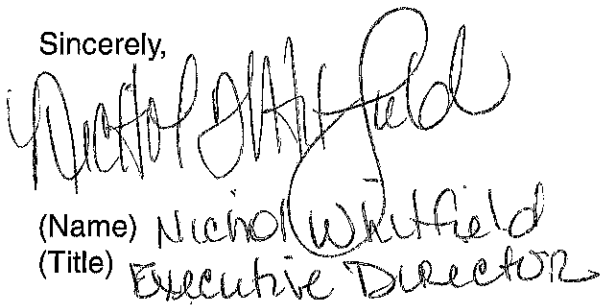 Sincerely,
Nichol Whitfield
(Name) Nichol Whitfield
(Title) Executive Director